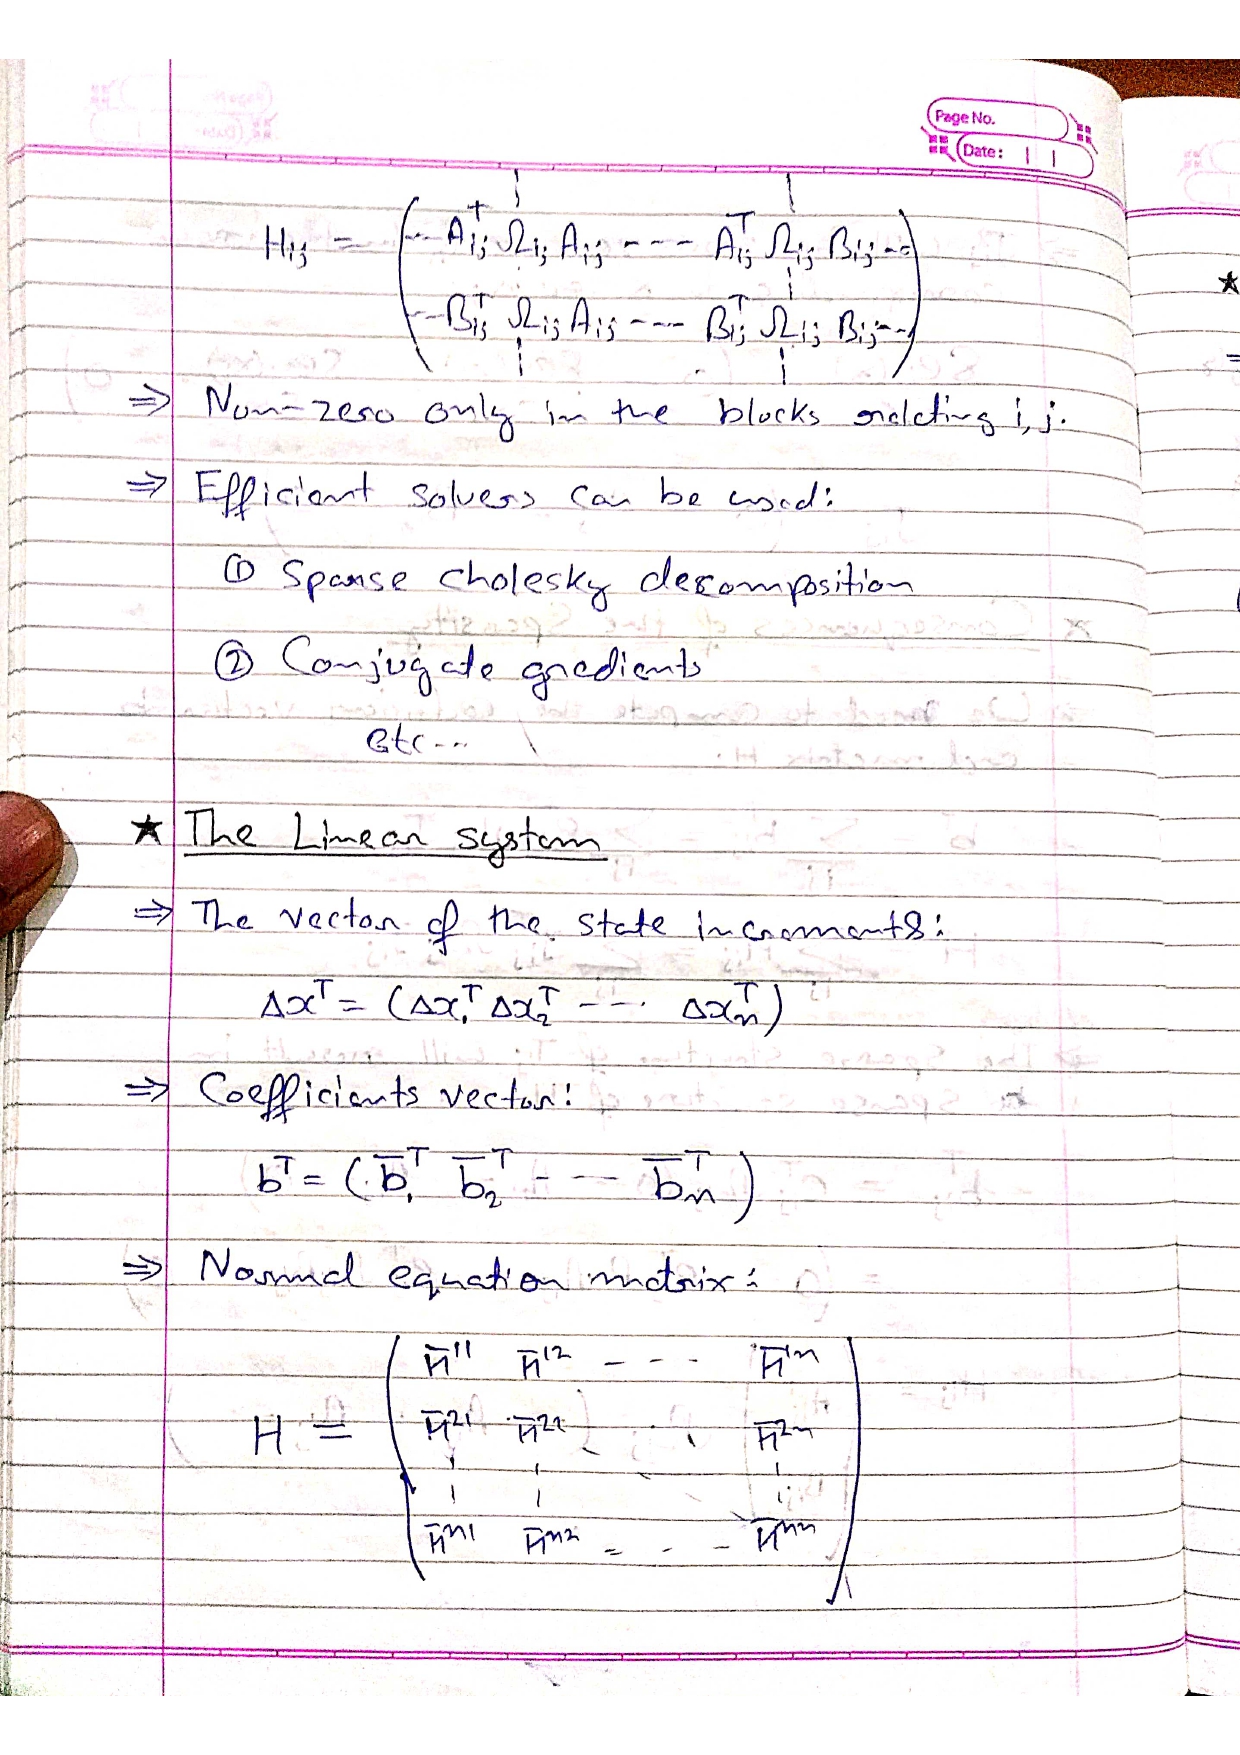 Page No.
Date:
Hij = ( -- Aijᵀ Ωij Aij --- Aijᵀ Ωij Bij -- )
( -- Bijᵀ Ωij Aij --- Bijᵀ Ωij Bij -- )
⇒ Non-zero only in the blocks relating i, j.
⇒ Efficient solvers can be used:
① Sparse cholesky decomposition
② Conjugate gradients
etc...
★ The Linear system
⇒ The vector of the state increments:
Δxᵀ = (Δx₁ᵀ Δx₂ᵀ -- ... Δxₙᵀ)
⇒ Coefficients vector:
bᵀ = (b̄₁ᵀ b̄₂ᵀ - -- b̄ₙᵀ)
⇒ Normal equation matrix:
H̄¹¹ H̄¹² - - -- H̄¹ⁿ
H = H̄²¹ H̄²² H̄²ⁿ
H̄ⁿ¹ H̄ⁿ² - - - - H̄ⁿⁿ